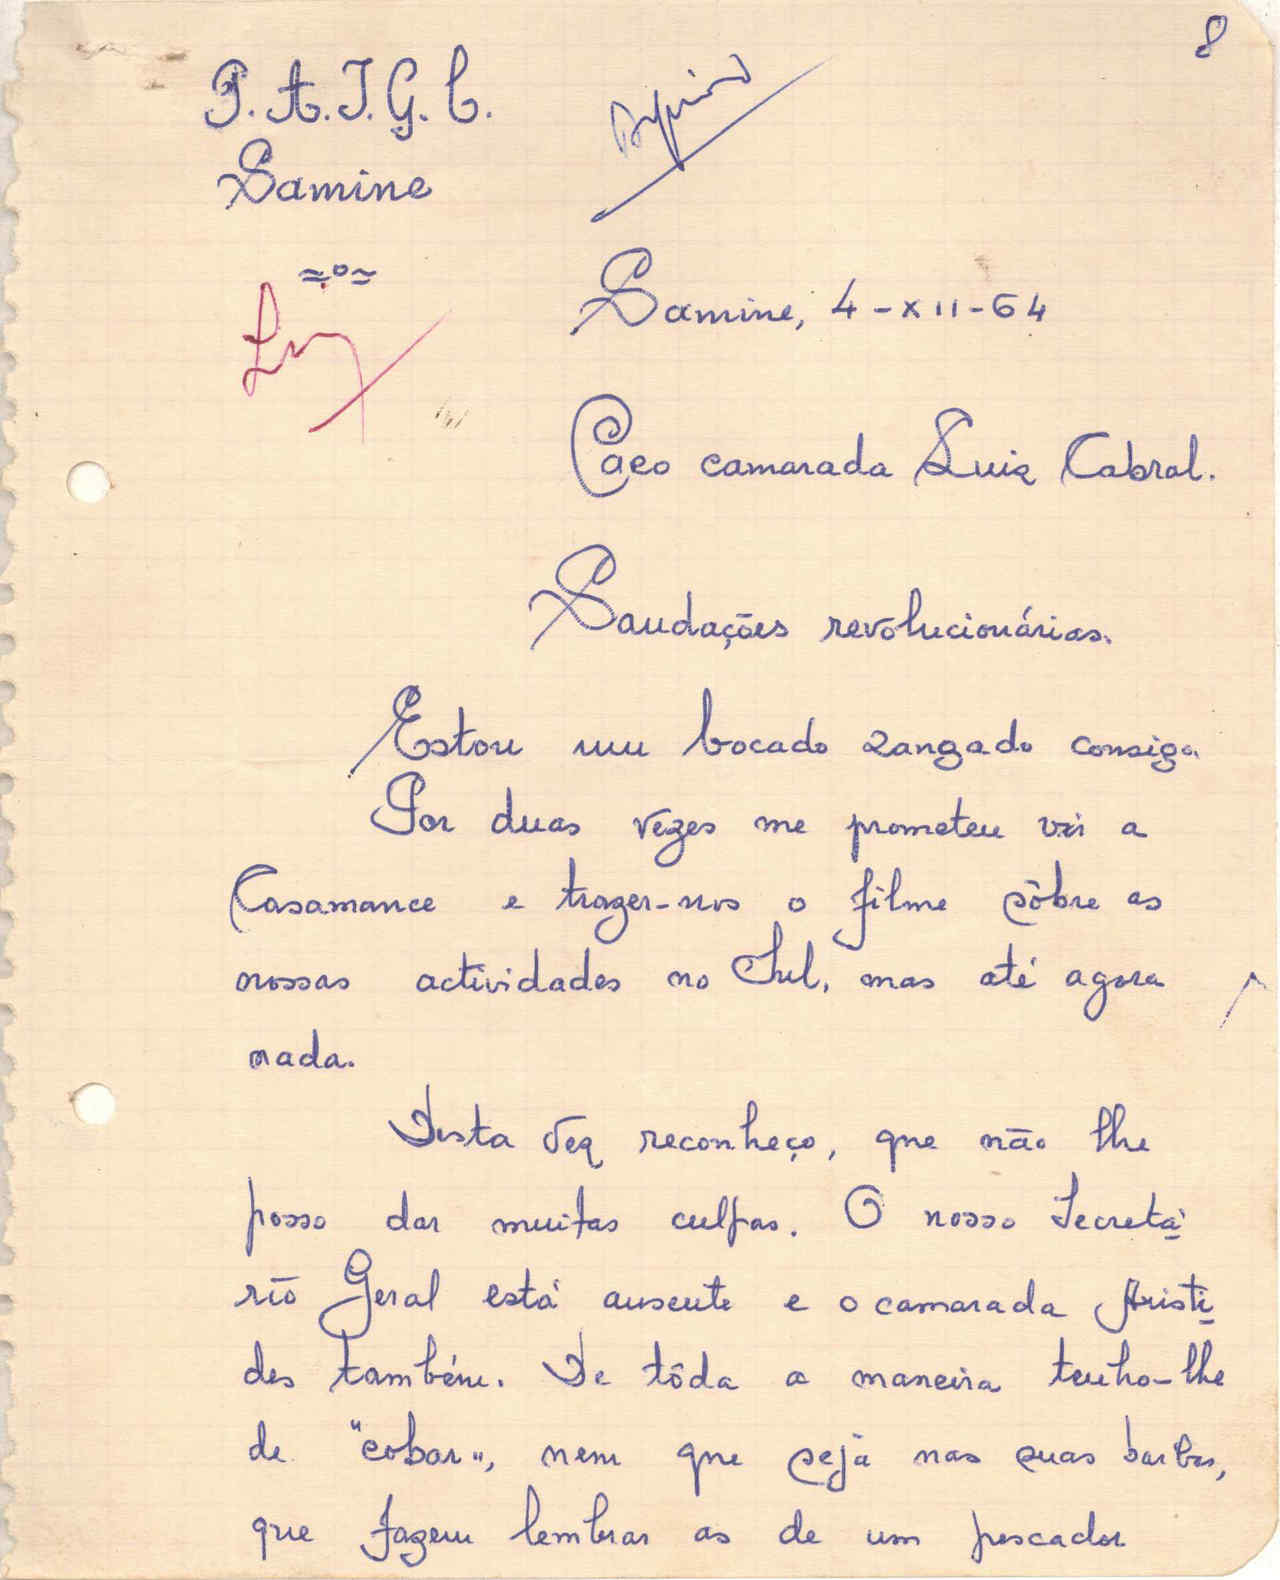 8
P.A.I.G.C.
Samine
Samine, 4-XII-64
Caro camarada Luiz Cabral.
Saudações revolucionárias.
Estou um bocado zangado consigo.
Por duas vezes me prometeu vir a
Casamance e trazer-nos o filme sôbre as
nossas actividades no Sul, mas até agora
nada.
Desta vez reconheço, que não lhe
posso dar muitas culpas. O nosso Secretá
rio Geral está ausente e o camarada Aristi
des também. De tôda a maneira tenho-lhe
de "cobar", nem que seja nas suas barbas,
que fazem lembrar as de um pescador